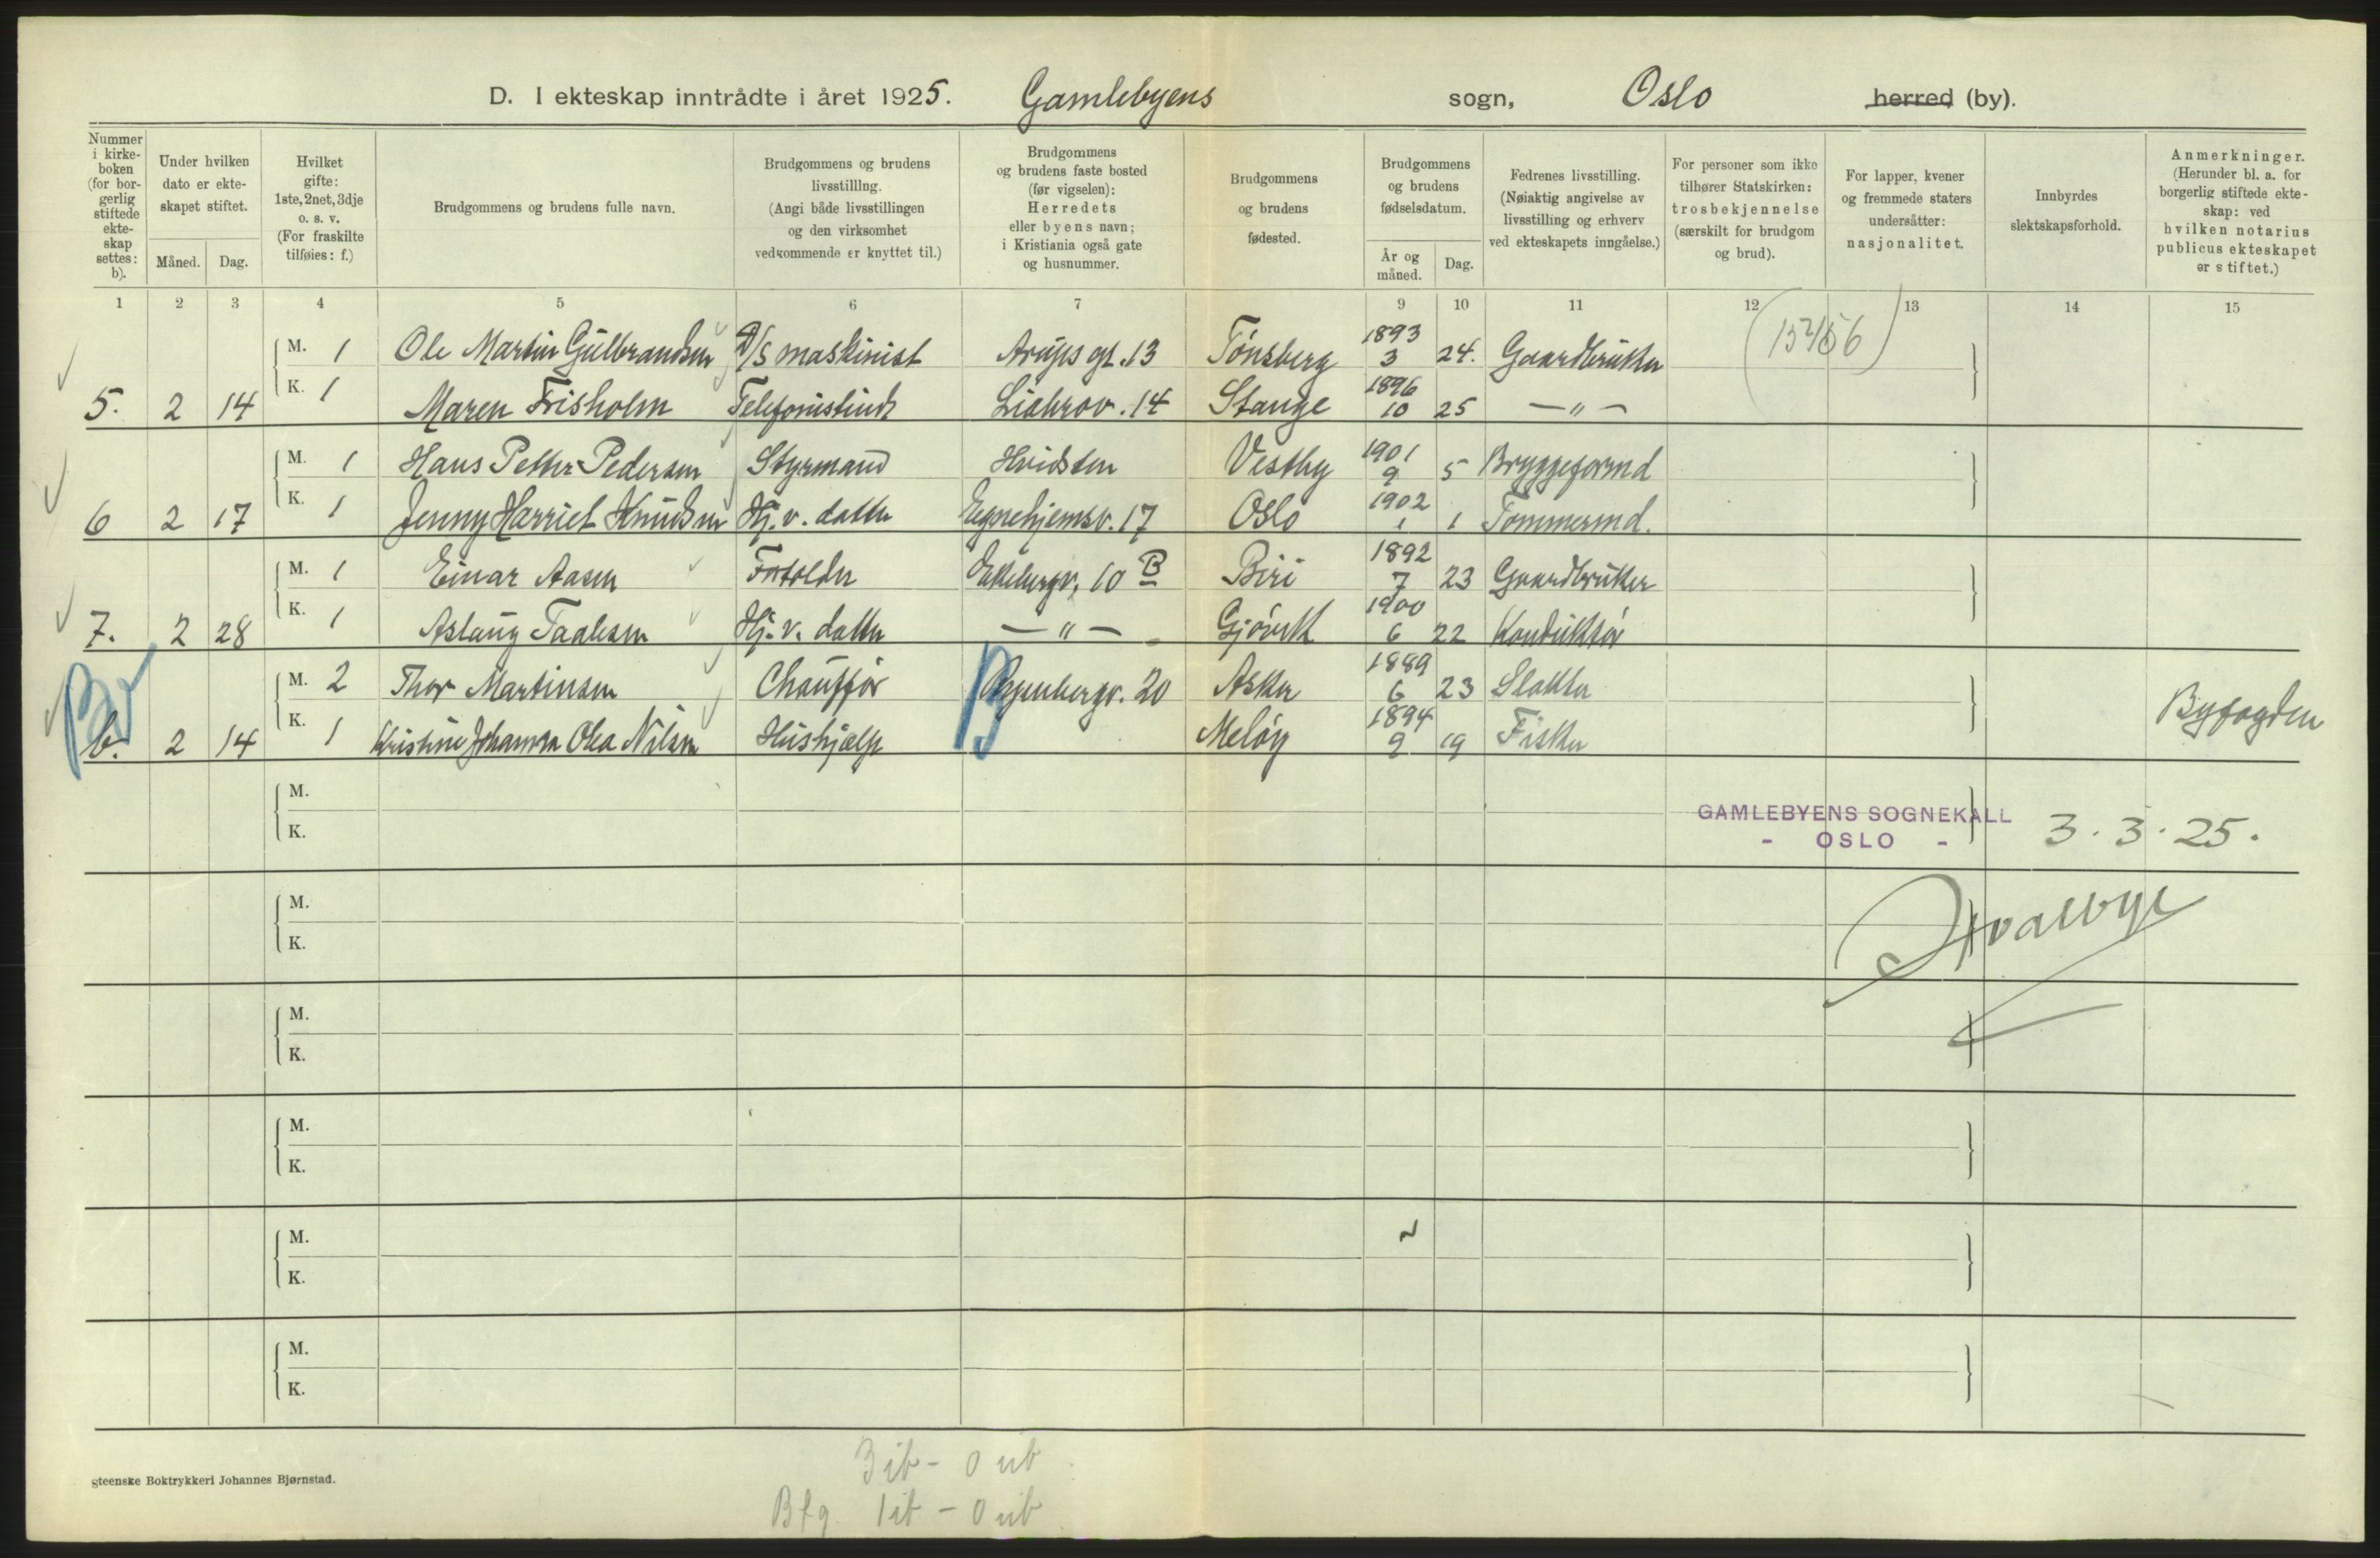 D. I ekteskap inntrådte i året 1925. Gamlebyens sogn, Oslo herred (by).
Nummer i kirke-boken (for bor-gerlig stiftede ekte-skap settes: b).
Under hvilken dato er ekte-skapet stiftet.
Måned. Dag.
Hvilket gifte: 1ste, 2net, 3dje o. s. v. (For fraskilte tilføies: f.)
Brudgommens og brudens fulle navn.
Brudgommens og brudens livsstilling. (Angi både livsstillingen og den virksomhet vedkommende er knyttet til.)
Brudgommens og brudens faste bosted (før vigselen): Herredets eller byens navn; i Kristiania også gate og husnummer.
Brudgommens og brudens fødested.
Brudgommens og brudens fødselsdatum.
År og måned. Dag.
Fedrenes livsstilling. (Nøiaktig angivelse av livsstilling og erhverv ved ekteskapets inngåelse.)
For personer som ikke tilhører Statskirken: trosbekjennelse (særskilt for brudgom og brud).
For lapper, kvener og fremmede staters undersåtter: nasjonalitet.
Innbyrdes slektskapsforhold.
Anmerkninger. (Herunder bl. a. for borgerlig stiftede ekte-skap: ved hvilken notarius publicus ekteskapet er stiftet.)
1 2 3 4 5 6 7 8 9 10 11 12 13 14 15
M. 1 Ole Martin Gulbrandsen D/S maskinist Arups gt. 13 Tönsberg 1893 3 24. Gaardbruker
5. 2 14 K. 1 Maren Frisholm Telefonistinde Liabrov. 14 Stange 1896 10 25 — " —
M. 1 Hans Petter Pedersen Styrmand Hvidsten Vestby 1901 9 5 Bryggeformd
6 2 17 K. 1 Jenny Harriet Knudsen Hj. v. datter Egnehjemsv. 17 Oslo 1902 1 1 Tømmermd.
M. 1 Einar Aasen Ekebergv. 10 B Biri 1892 7 23 Gaardbruker
7. 2 28 K. 1 Aslaug Taalesen Hj. v. datter — " — Gjövik 1900 6 22 Konduktör
M. 2 Thor Martinsen Chaufför 20 Asker 1889 6 23 Slakter
b. 2 14 K. 1 Kristine Johanna Olea Nilsen Hushjælp Melöy 1894 9 19 Fisker Byfogden
M.
K.
GAMLEBYENS SOGNEKALL
- OSLO - 3.3.25.
M.
K.
M.
K.
M.
K.
M.
K.
M.
K.
3 ib - 0 ub
Bfg. 1 ib - 0 ub
gteenske Boktrykkeri Johannes Bjørnstad.